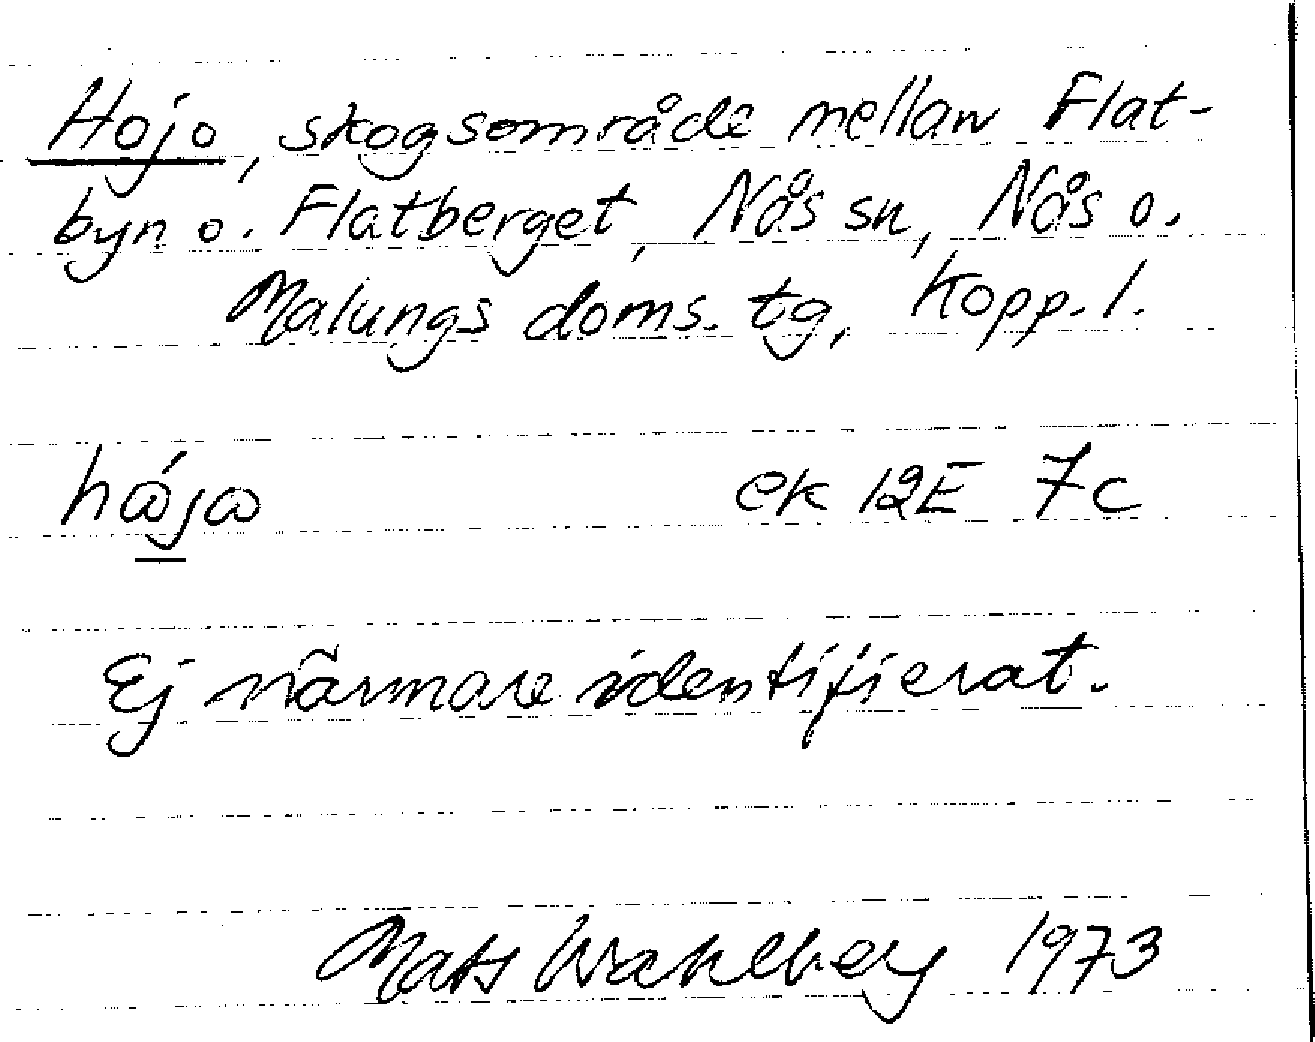 Hojo, skogsområde mellan Flat-
byn o. Flatberget, Nås sn, Nås o.
Malungs doms. tg, Kopp. l.
ek 12E 7c
Ej närmare identifierat.
Mats Wahlberg 1973